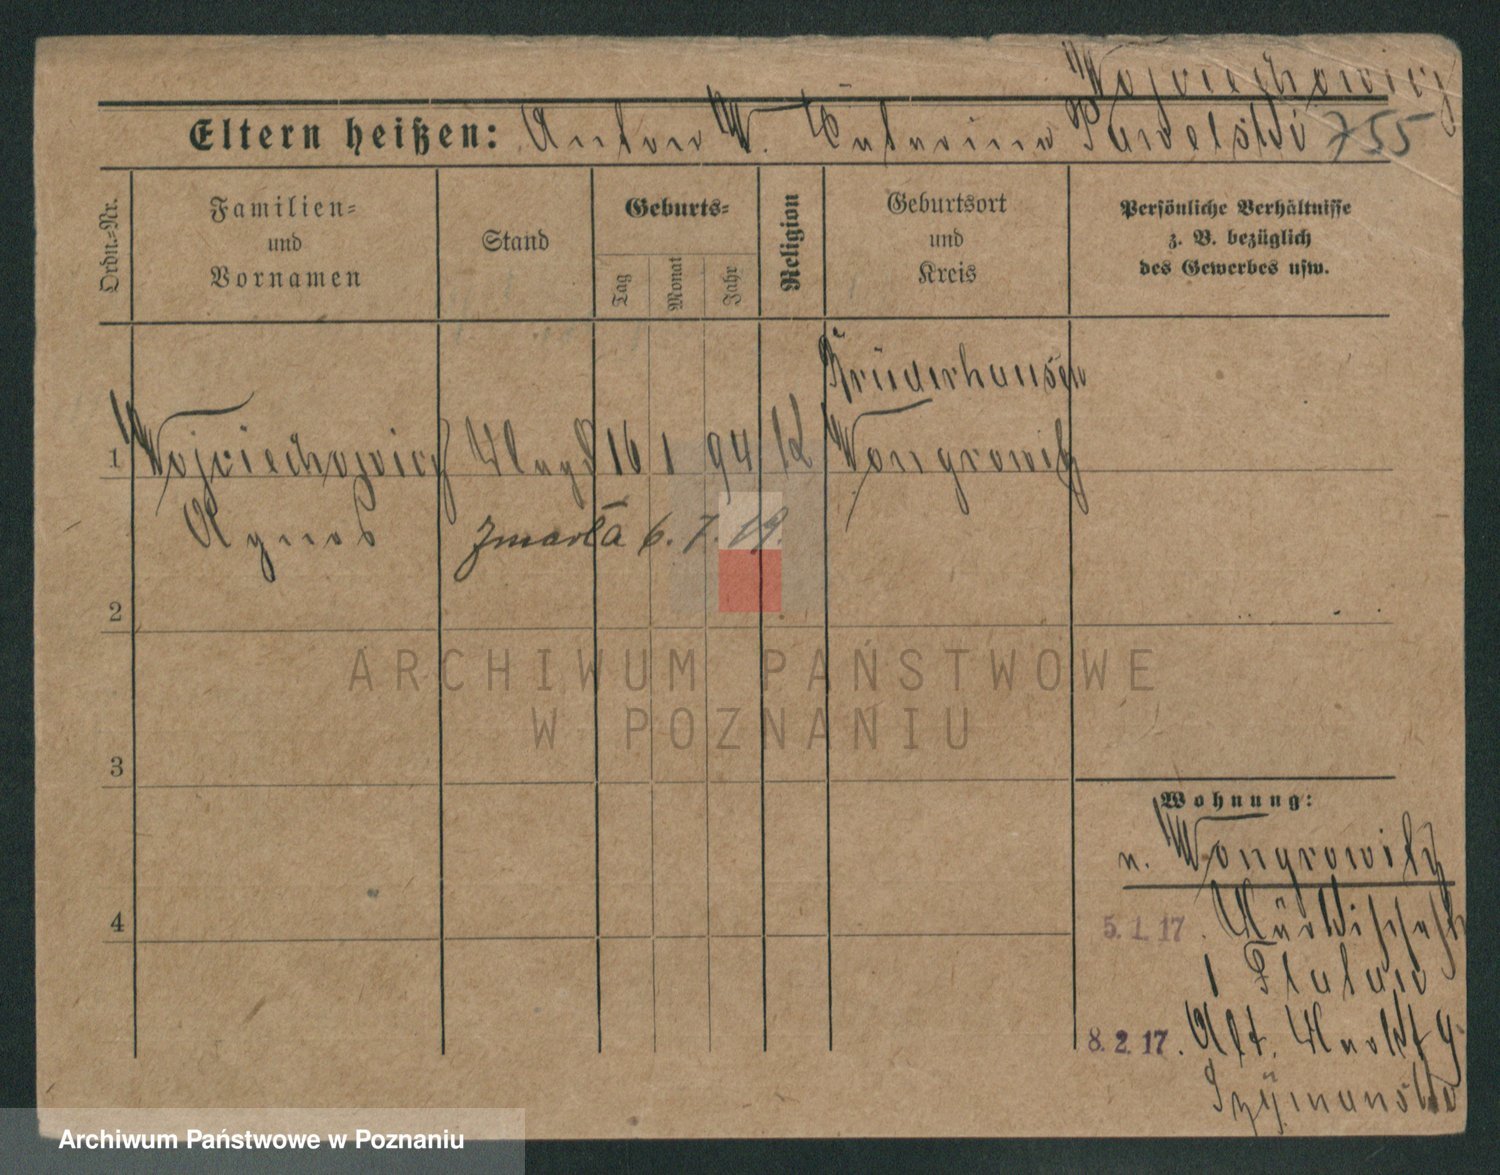 Wojciechowicz
Eltern heißen: Anton W. Katarina Pawelski 755
Ordn.-Nr.
Familien-
und
Vornamen
Stand
Geburts-
Tag
Monat
Jahr
Religion
Geburtsort
und
Kreis
Persönliche Verhältnisse
z. B. bezüglich
des Gewerbes usw.
Brüderhausen
1 Wojciechowicz Magd 16 1 94 K Wongrowitz
Agnes zmarła 6.7.19.
2
ARCHIWUM PAŃSTWOWE
W POZNANIU
3
Wohnung:
n. Wongrowitz
4
5. 1. 17.
1
8. 2. 17. Alt. Markt 9
Szymanski
Archiwum Państwowe w Poznaniu